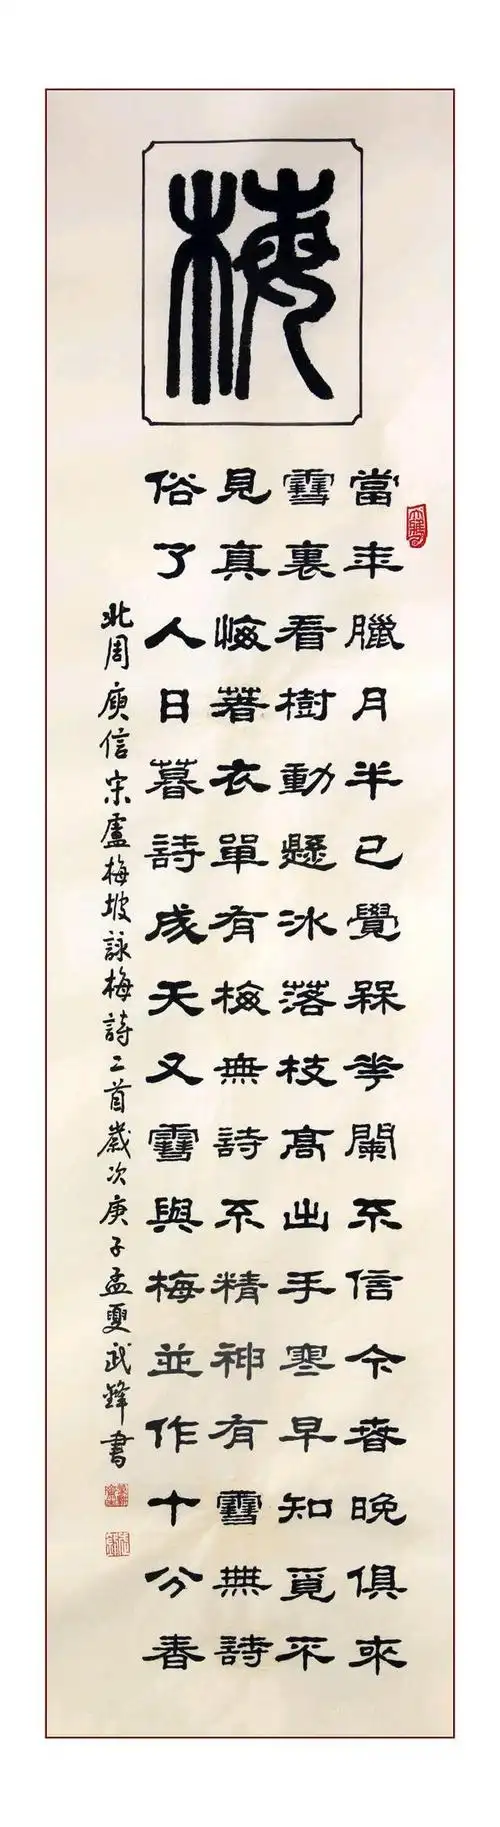 梅
當年臘月半已覺槑花闌不信今春晚俱來
雪裏看樹動懸冰落枝高出手寒早知覓不
見真悔著衣單有梅無詩不精神有雪無詩
俗了人日暮詩成天又雪與梅並作十分春
北周庾信宋盧梅坡詠梅詩二首歲次庚子孟夏武鋒書